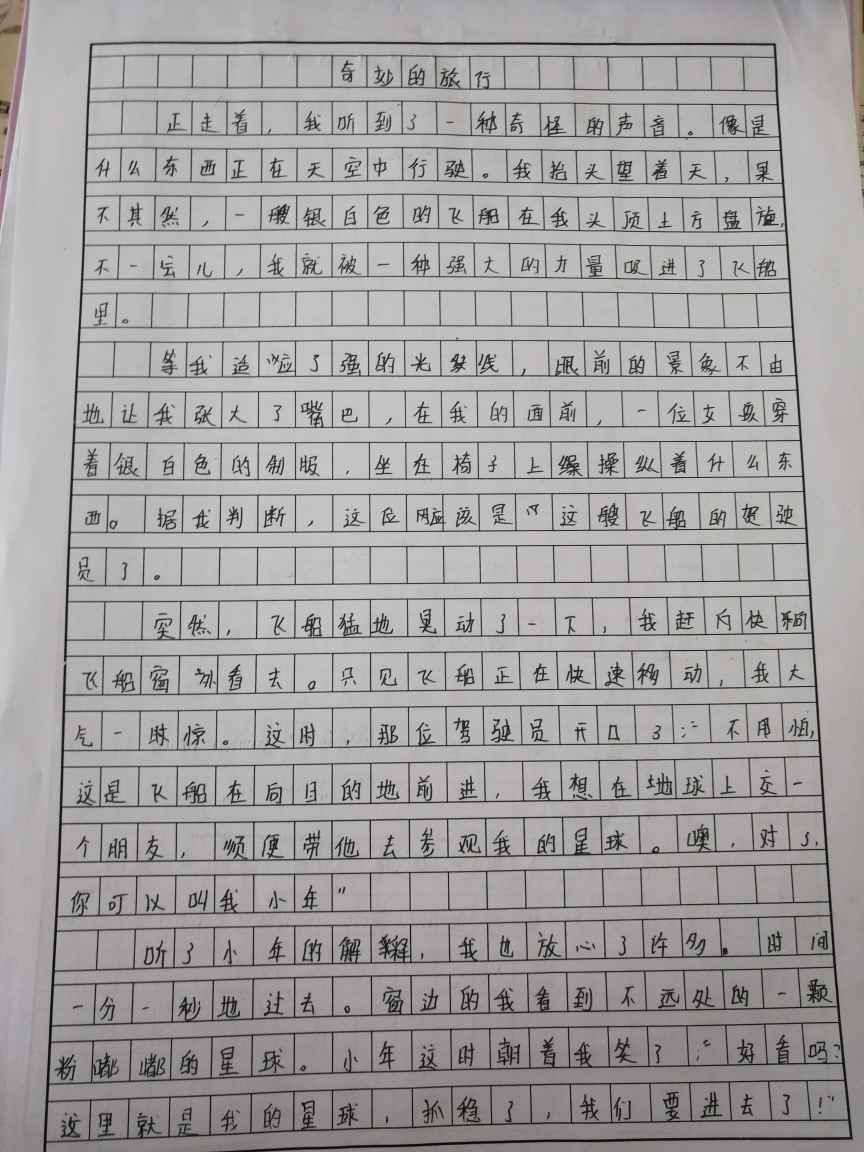 奇妙的旅行
正走着，我听到了一种奇怪的声音。像是
什么东西正在天空中行驶。我抬头望着天，果
不其然，一艘银白色的飞船在我头顶上方盘旋，
不一会儿，我就被一种强大的力量吸进了飞船
里。
等我适应了强的光线，眼前的景象不由
地让我张大了嘴巴，在我的面前，一位女孩穿
着银白色的制服，坐在椅子上操纵着什么东
西。据我判断，这位应该是这艘飞船的驾驶
员了。
突然，飞船猛地晃动了一下，我赶快向
飞船窗外看去。只见飞船正在快速移动，我大
吃一惊。这时，那位驾驶员开口了：“不用怕，
这是飞船在向目的地前进，我想在地球上交一
个朋友，顺便带他去参观我的星球。噢，对了，
你可以叫我小年”
听了小年的解释，我也放心了许多。时间
一分一秒地过去。窗边的我看到不远处的一颗
粉嘟嘟的星球。小年这时朝着我笑了：“好看吗？
这里就是我的星球，抓稳了，我们要进去了！”